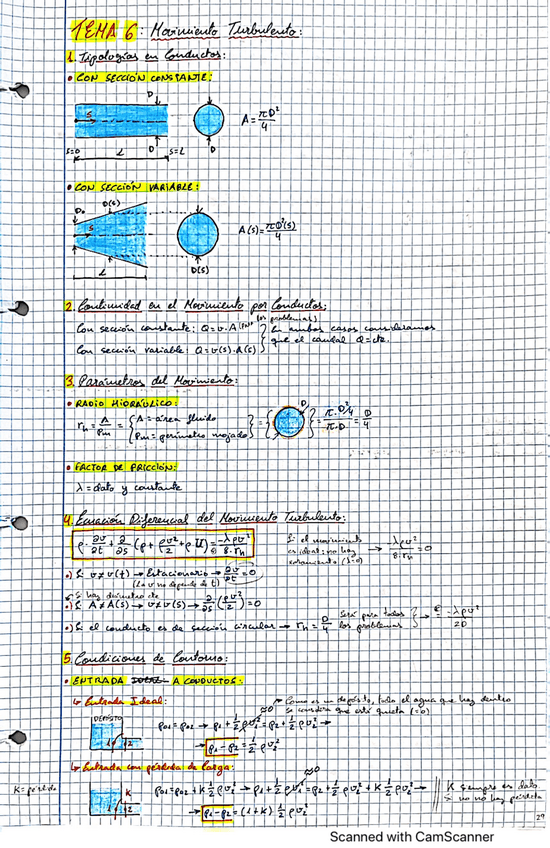 TEMA 6: Movimiento Turbulento:
1. Tipologías en Conductos:
• CON SECCIÓN CONSTANTE:
D
s
A = πD²/4
s=0 L D s=L D
• CON SECCIÓN VARIABLE:
D₀ D(s)
s
A(s) = πD²(s)/4
L D(s)
2. Continuidad en el Movimiento por Conductos:
(los problemas)
Con sección constante: Q = v·A } En ambos casos consideramos
que el caudal Q = cte.
Con sección variable: Q = v(s)·A(s)
3. Parámetros del Movimiento:
• RADIO HIDRÁULICO:
rh = A/Pm = { A = área fluido
Pm = perímetro mojado } = { D } = (π·D²/4)/(π·D) = D/4
• FACTOR DE FRICCIÓN:
λ = dato y constante
4. Ecuación Diferencial del Movimiento Turbulento:
ρ·∂v/∂t + ∂/∂s (p + ρv²/2 + ρU) = -λρv²/8·rh
Si el movimiento
es ideal: no hay
rozamiento (λ=0) → λρv²/8·rh = 0
•) Si v ≠ v(t) → Estacionario → ∂v/∂t = 0
(la v no depende de t)
Si hay diámetro cte
•) Si A ≠ A(s) → v ≠ v(s) → ∂/∂s (ρv²/2) = 0
•) Si el conducto es de sección circular → rh = D/4 Será para todos
los problemas } → -λρv²/2D
5. Condiciones de Contorno:
• ENTRADA A CONDUCTOS:
↳ Entrada Ideal:
Como es un depósito, toda el agua que hay dentro
se considera que está quieta (=0)
DEPÓSITO
1 2
≈0
p01 = p02 → p1 + ½ρv1² = p2 + ½ρv2² →
→ p1 - p2 = ½ρv2²
↳ Entrada con pérdida de carga:
≈0
K = pérdida
K
1 2
p01 = p02 + K½ρv2² → p1 + ½ρv1² = p2 + ½ρv2² + K½ρv2² →
K siempre es dato
si no no hay pérdida
→ p1 - p2 = (1+K) ½ρv2²
29
Scanned with CamScanner